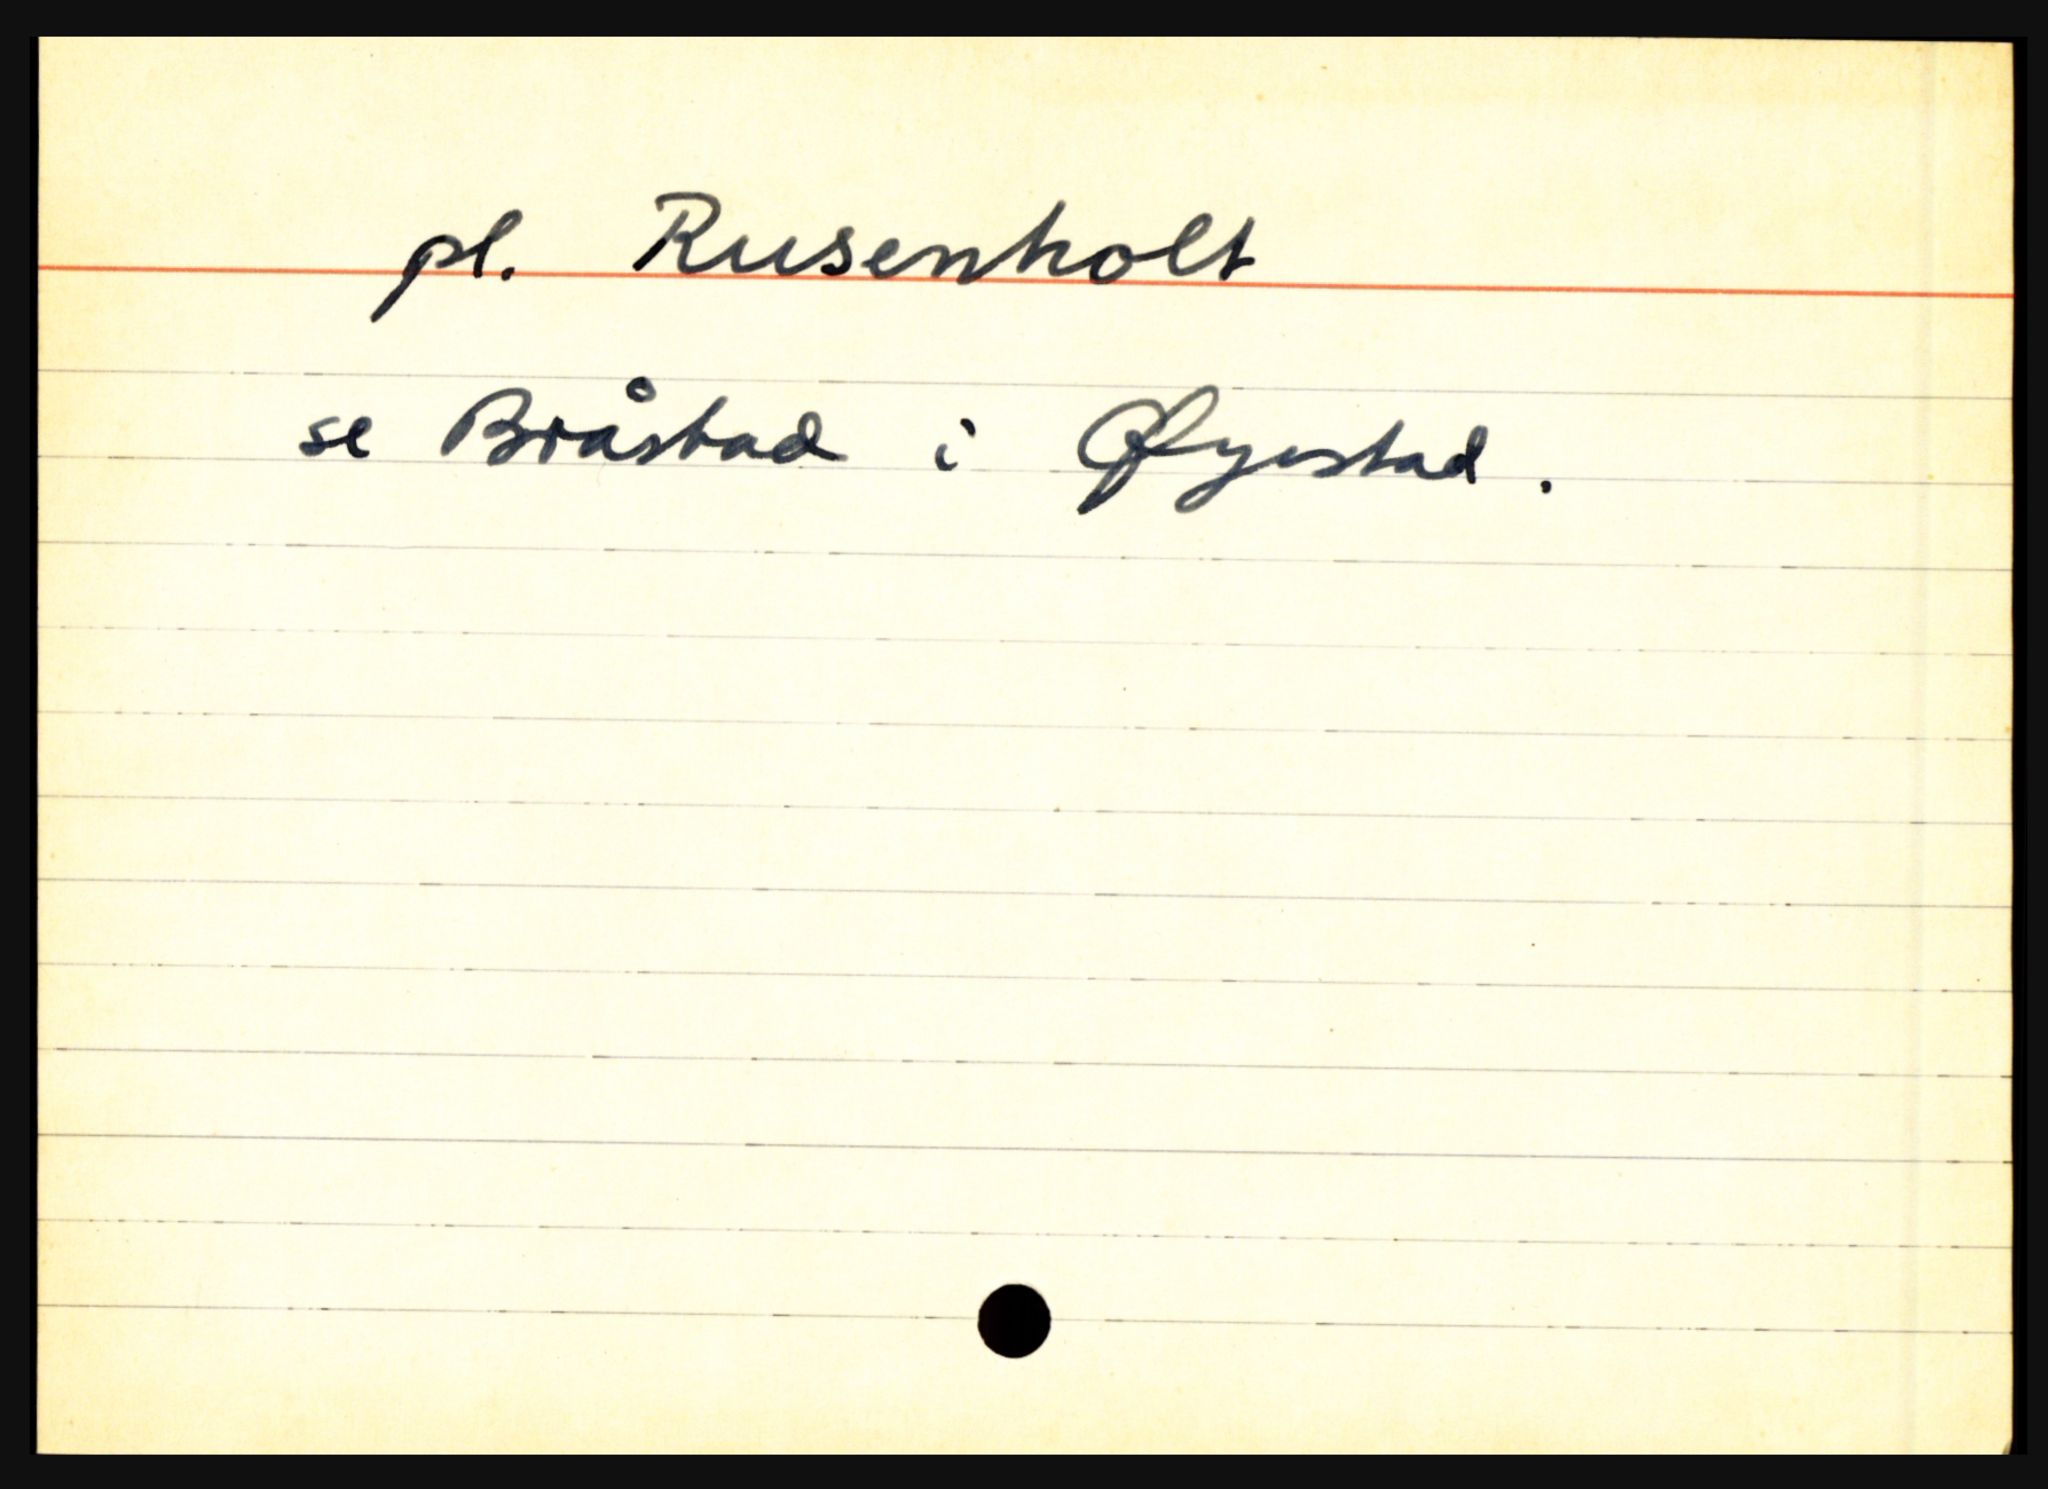 pl. Rusenholt
se Bråstad i Øyestad.